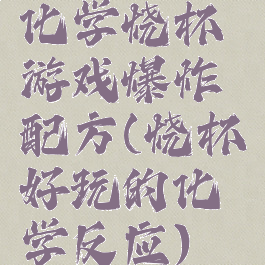 化学烧杯
游戏爆炸
配方(烧杯
好玩的化
学反应)